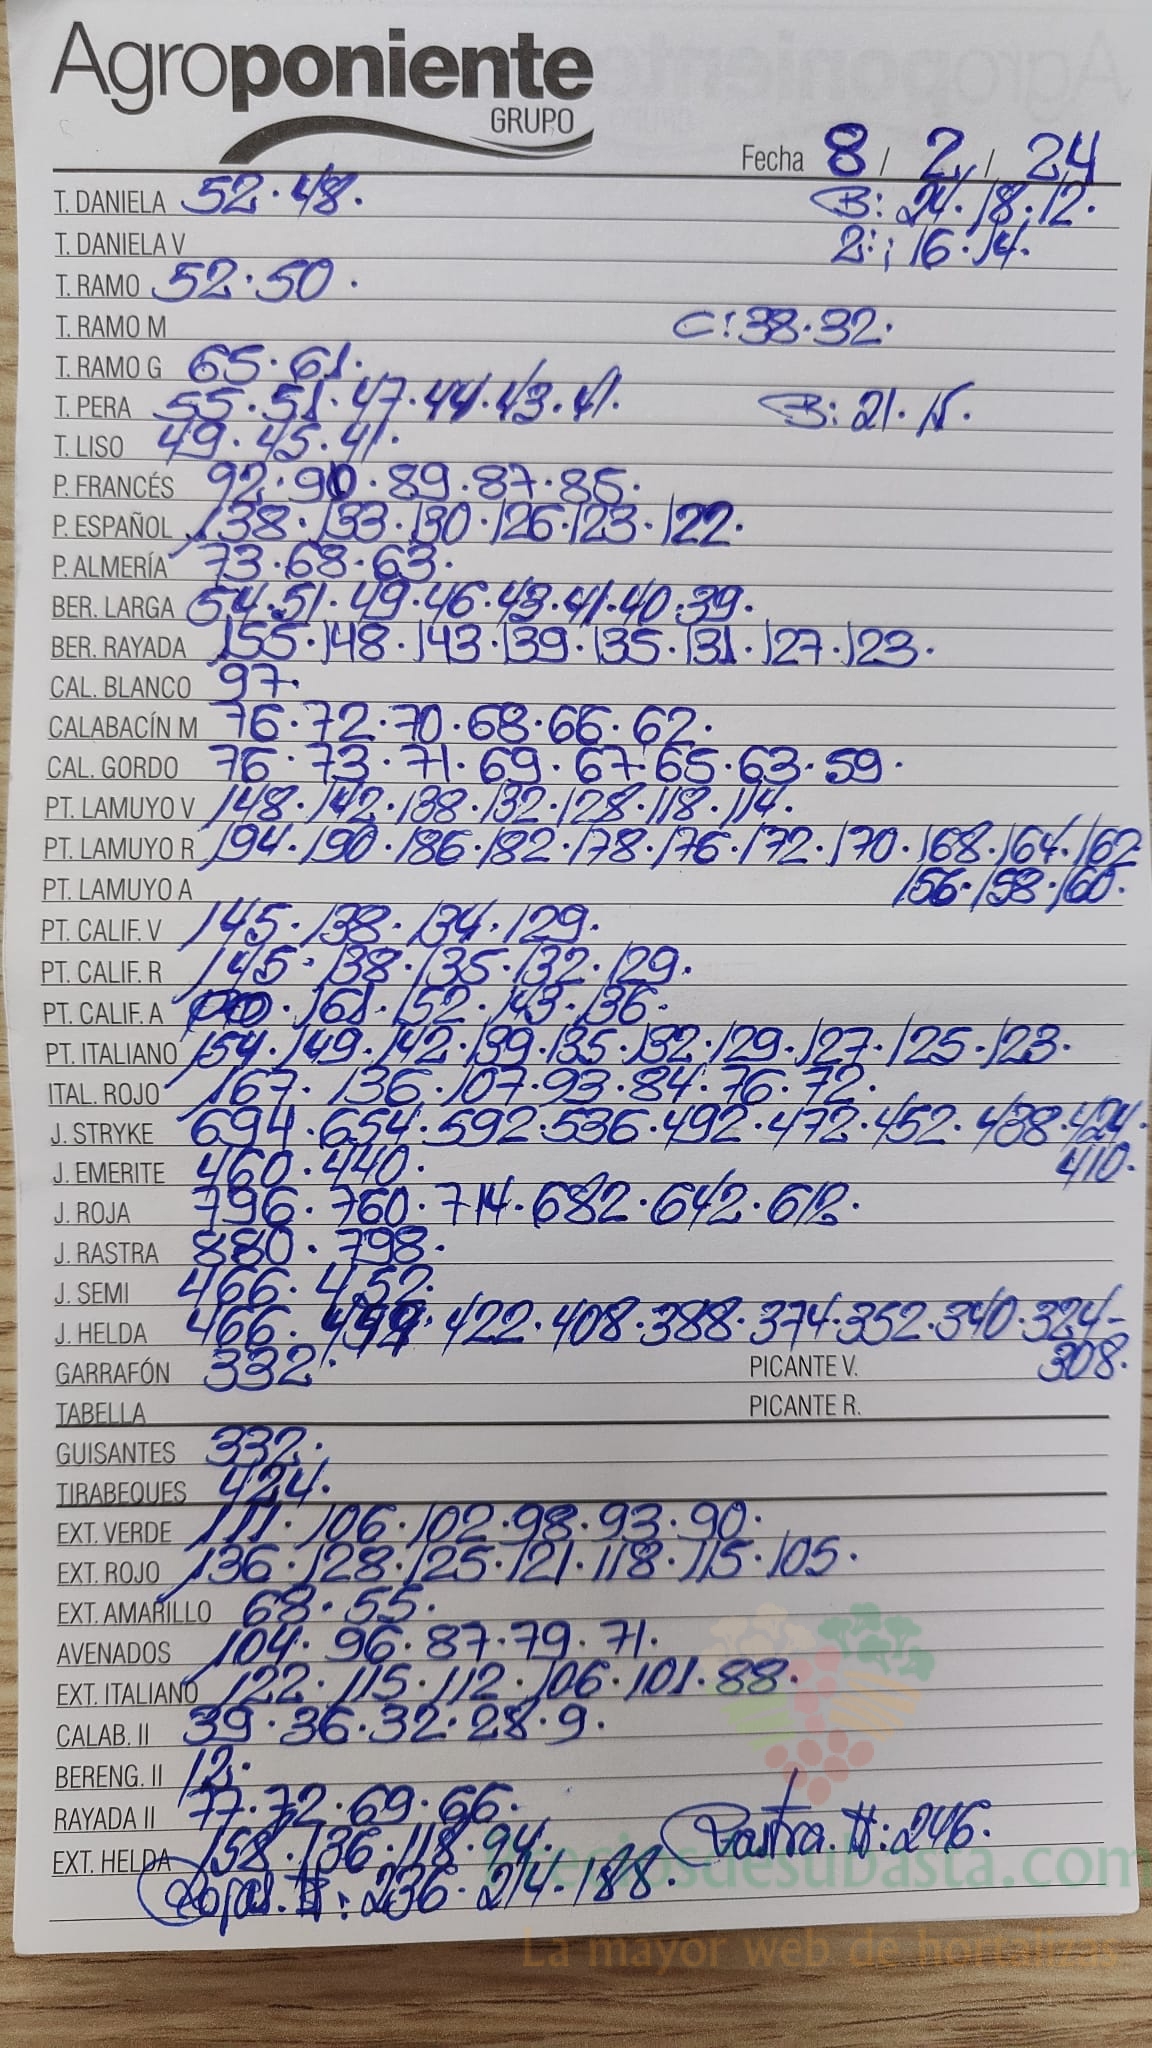 Agroponiente
GRUPO
Fecha 8 / 2 / 24
T. DANIELA 52·48. B: 24·18·12.
T. DANIELA V 2: 16·14.
T. RAMO 52·50.
T. RAMO M C: 38·32.
T. RAMO G 65·61.
T. PERA 55·51·47·44·43·41. B: 21·15.
T. LISO 49·45·41.
P. FRANCÉS 92·90·89·87·85.
P. ESPAÑOL 138·133·130·126·123·122.
P. ALMERÍA 73·68·63.
BER. LARGA 54·51·49·46·43·41·40·39.
BER. RAYADA 155·148·143·139·135·131·127·123.
CAL. BLANCO 97.
CALABACÍN M 76·72·70·68·66·62.
CAL. GORDO 76·73·71·69·67·65·63·59.
PT. LAMUYO V 148·142·138·132·128·118·114.
PT. LAMUYO R 194·190·186·182·178·176·172·170·168·164·162
PT. LAMUYO A 156·158·160.
PT. CALIF. V 145·138·134·129.
PT. CALIF. R 145·138·135·132·129.
PT. CALIF. A 161·152·143·136.
PT. ITALIANO 154·149·142·139·135·132·129·127·125·123.
ITAL. ROJO 167·136·107·93·84·76·72.
J. STRYKE 694·654·592·536·492·472·452·438·424·
J. EMERITE 460·440. 410.
J. ROJA 796·760·714·682·642·612.
J. RASTRA 880·798.
J. SEMI 466·452.
J. HELDA 466· ·422·408·388·374·352·340·324-
GARRAFÓN 332. PICANTE V. 308.
TABELLA PICANTE R.
GUISANTES 332.
TIRABEQUES 424.
EXT. VERDE 111·106·102·98·93·90.
EXT. ROJO 136·128·125·121·118·115·105.
EXT. AMARILLO 68·55.
AVENADOS 104·96·87·79·71.
EXT. ITALIANO 122·115·112·106·101·88.
CALAB. II 39·36·32·28·9.
BERENG. II 12.
RAYADA II 77·72·69·66.
EXT. HELDA 158·136·118·94. Rastra. II: 246.
Rojas. II: 236·214·188.
Preciosdesubasta.com
La mayor web de hortalizas